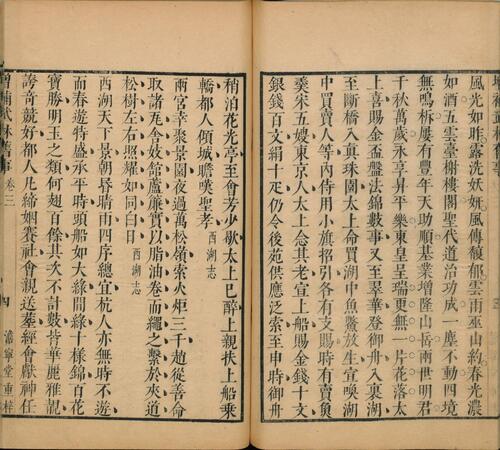 風光如昨露洗妖妍風傳馥郁雲雨巫山約春光濃
如酒五雲臺榭樓閣聖代道治功成一塵不動四境
無鳴柝屢有豐年天助順基業增隆山岳兩世明君
千秋萬歲永享昇平樂東皇呈瑞更無一片花落太
上喜賜金盃盤法錦數事又至翠華登御舟入裏湖
至斷橋入真珠園太上命買湖中魚鱉放生宣喚湖
中買賣人等内侍用小旗招引各有支賜時有賣魚
羹宋五嫂東京人太上念其老宣上船賜金錢十文
銀錢百文絹十疋仍令後苑供應泛索至申時御舟
稍泊花光亭至會芳少歇太上已醉上親扶上船乘
轎都人傾城瞻嘆聖孝西湖志
兩宮幸聚景園夜過萬松嶺索火炬三千趙從善命
取諸瓦舍妓館蘆簾實以脂油卷而繩之繫於夾道
松樹左右照耀如同白日西湖志
西湖天下景朝昏晴雨四序總宜杭人亦無時不遊
而春遊特盛承平時頭船如大綠間綠十樣錦百花
寶勝明玉之類何翅百餘其次不計數皆華麗雅靚
誇奇競好都人凡締姻賽社會親送葬經會獻神仕
增補武林舊事 卷三 四 澹寧堂重梓